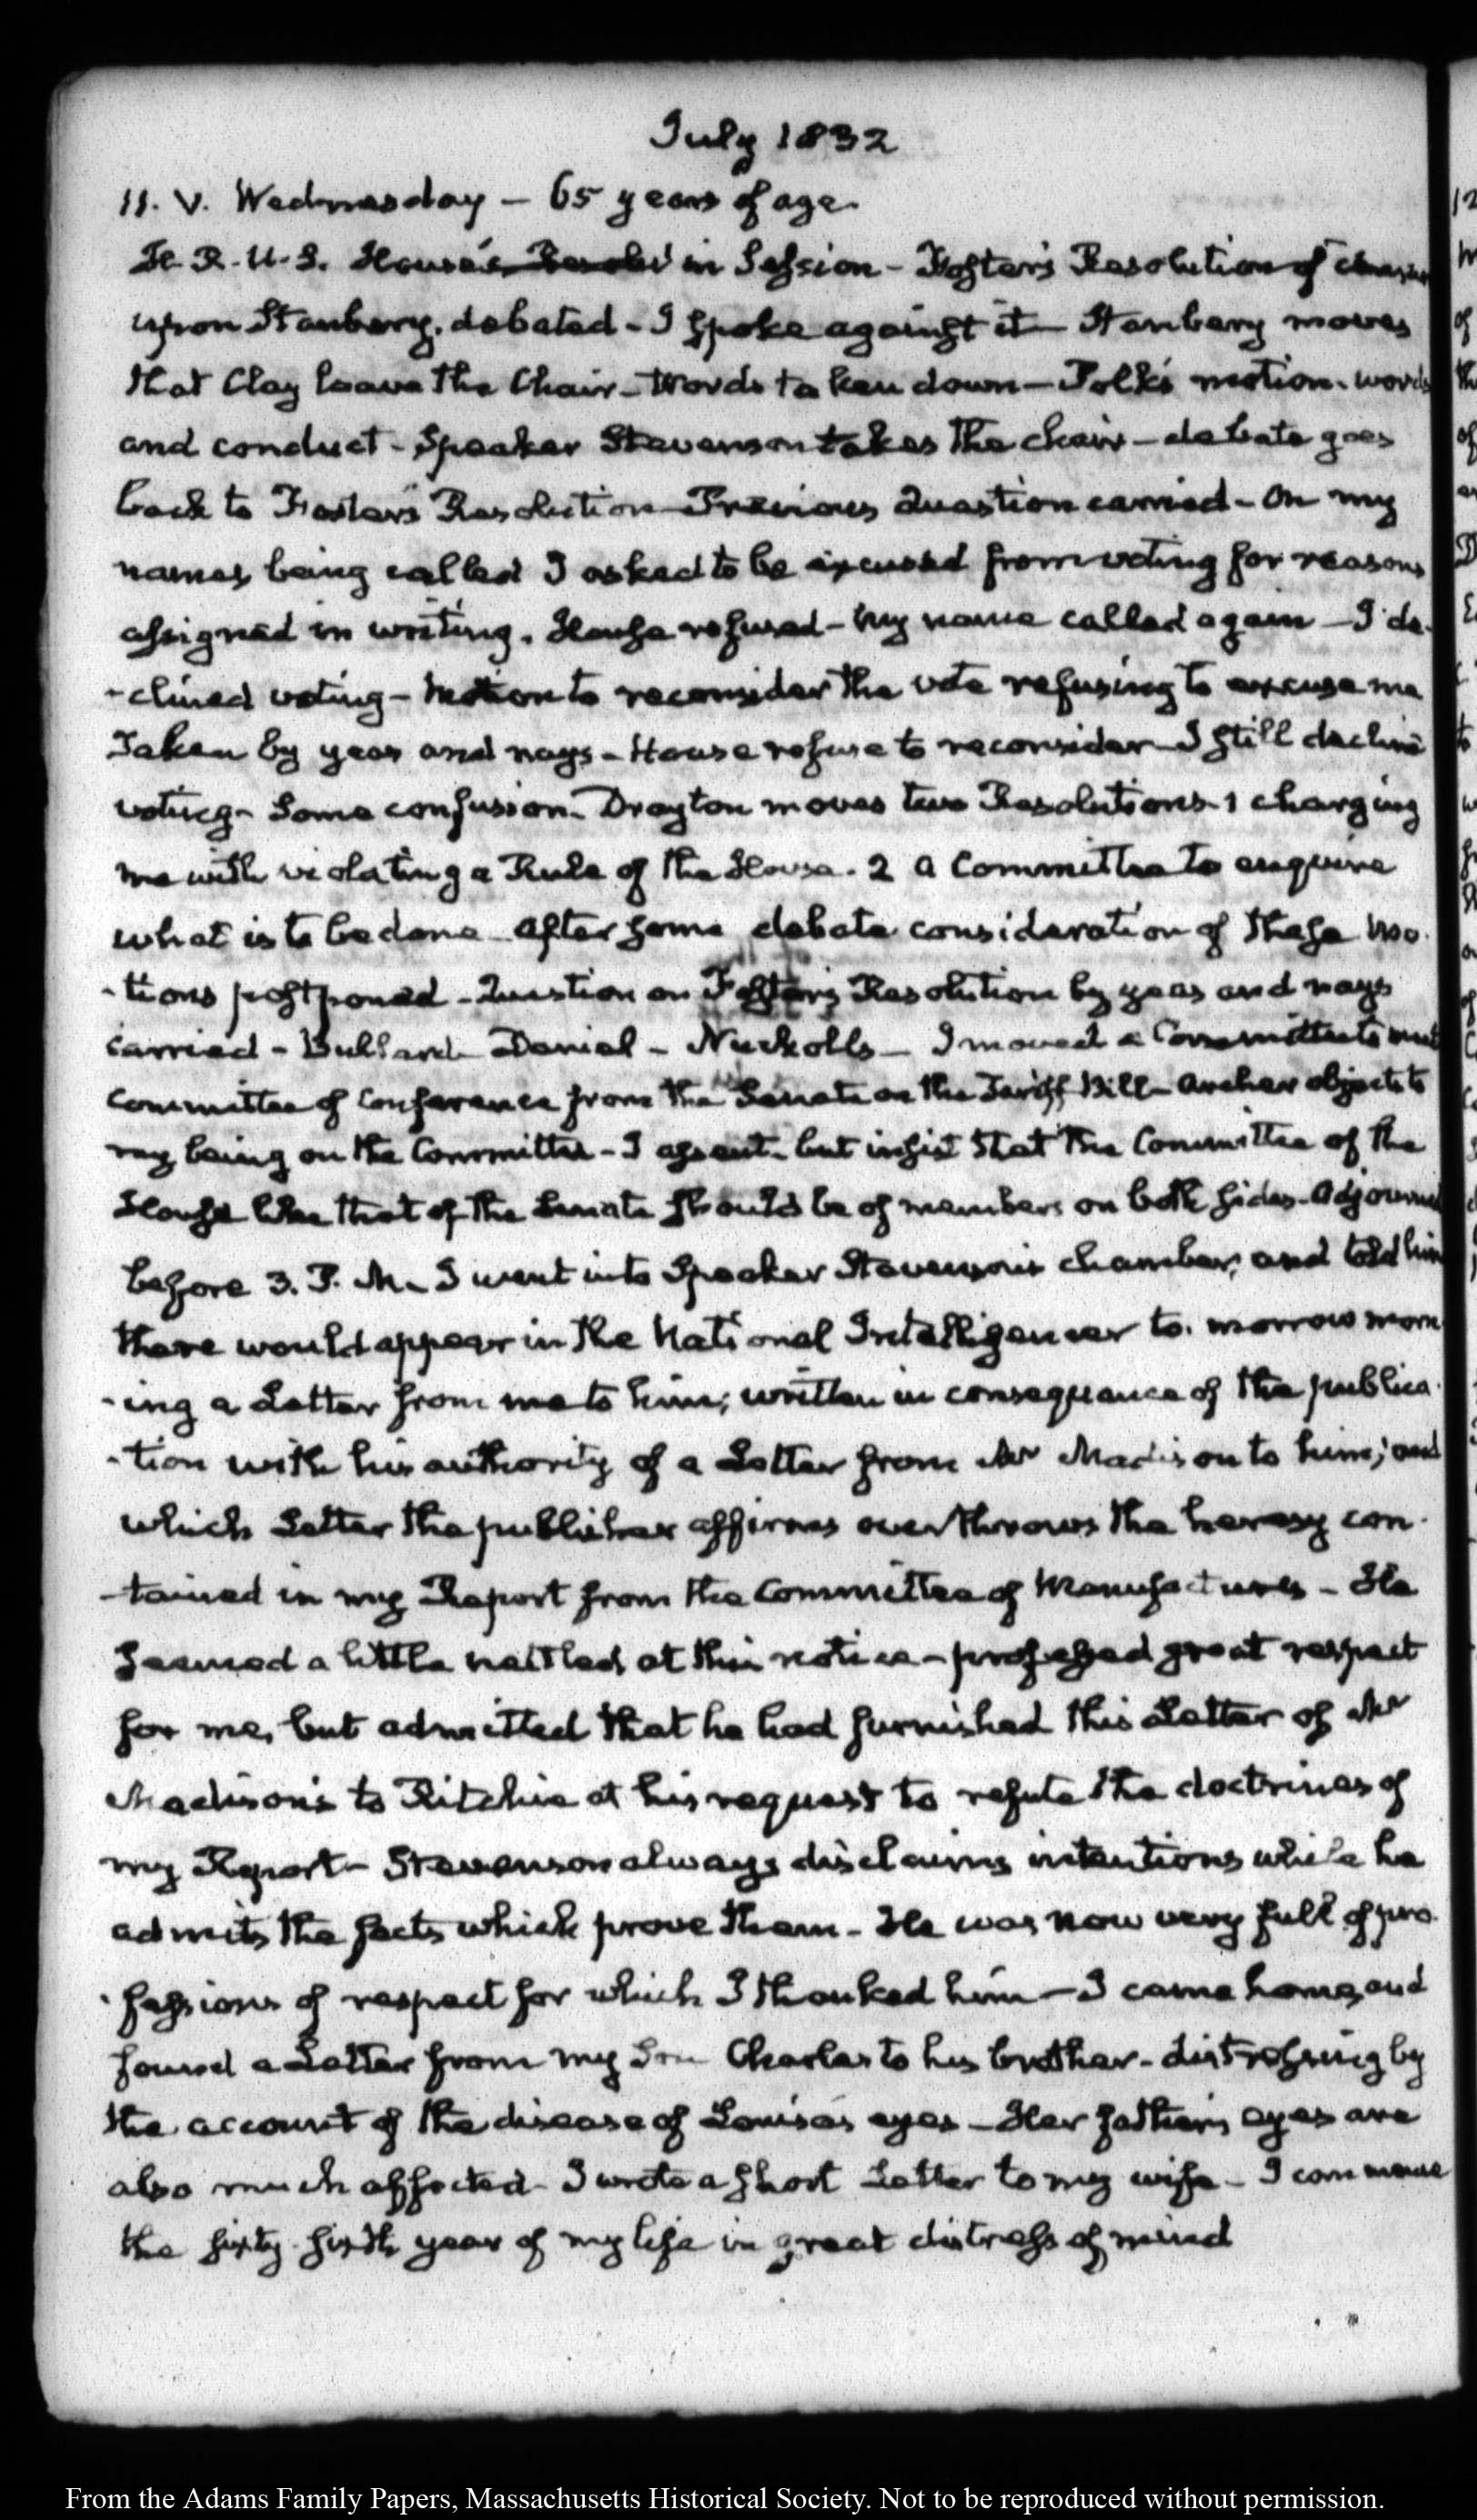 July 1832
11. V. Wednesday — 65 years of age.
H. R. U. S. House's Resolv in Session - Foster's Resolution of censure
upon Stanbery, debated - I spoke against it — Stanbery moves
that Clay leave the Chair - Words taken down — Polk's motion. words
and conduct - Speaker Stevenson takes the chair - debate goes
back to Foster's Resolution - Previous Question carried - On my
names being called I asked to be excused from voting for reasons
assigned in writing. House refused - my name called again - I de-
-clined voting - Motion to reconsider the vote refusing to excuse me
Taken by yeas and nays - House refuse to reconsider - I still decline
voting - Some confusion. Drayton moves two Resolutions - 1 charging
me with violating a Rule of the House. 2 a Committee to enquire
what is to be done - After some debate consideration of these mo-
-tions postponed - Question on Foster's Resolution by yeas and nays
carried - Bullard - Daniel - Nuckolls - I moved a Committee to meet
Committee of Conference from the Senate on the Tariff Bill - Archer objects to
my being on the Committee - I assent, but insist that the Committee of the
House like that of the Senate should be of members on both sides - Adjourned
before 3. P. M. I went into Speaker Stevenson's chamber, and told him
there would appear in the National Intelligencer to-morrow morn
-ing a Letter from me to him; written in consequence of the publica-
-tion with his authority of a Letter from Mr Madison to him; and
which Letter the publisher affirms overthrows the heresy con-
-tained in my Report from the Committee of Manufactures - He
seemed a little nettled at this notice - professed great respect
for me, but admitted that he had furnished this Letter of Mr
Madison's to Ritchie at his request to refute the doctrines of
my Report - Stevenson always disclaims intentions while he
admits the facts which prove them - He was now very full of pro-
-fessions of respect for which I thanked him — I came home, and
found a Letter from my Son Charles to his brother - distressing by
the account of the disease of Louisa's eyes - Her father's eyes are
also much affected - I wrote a short Letter to my wife - I commence
the sixty-sixth year of my life in great distress of mind
From the Adams Family Papers, Massachusetts Historical Society. Not to be reproduced without permission.